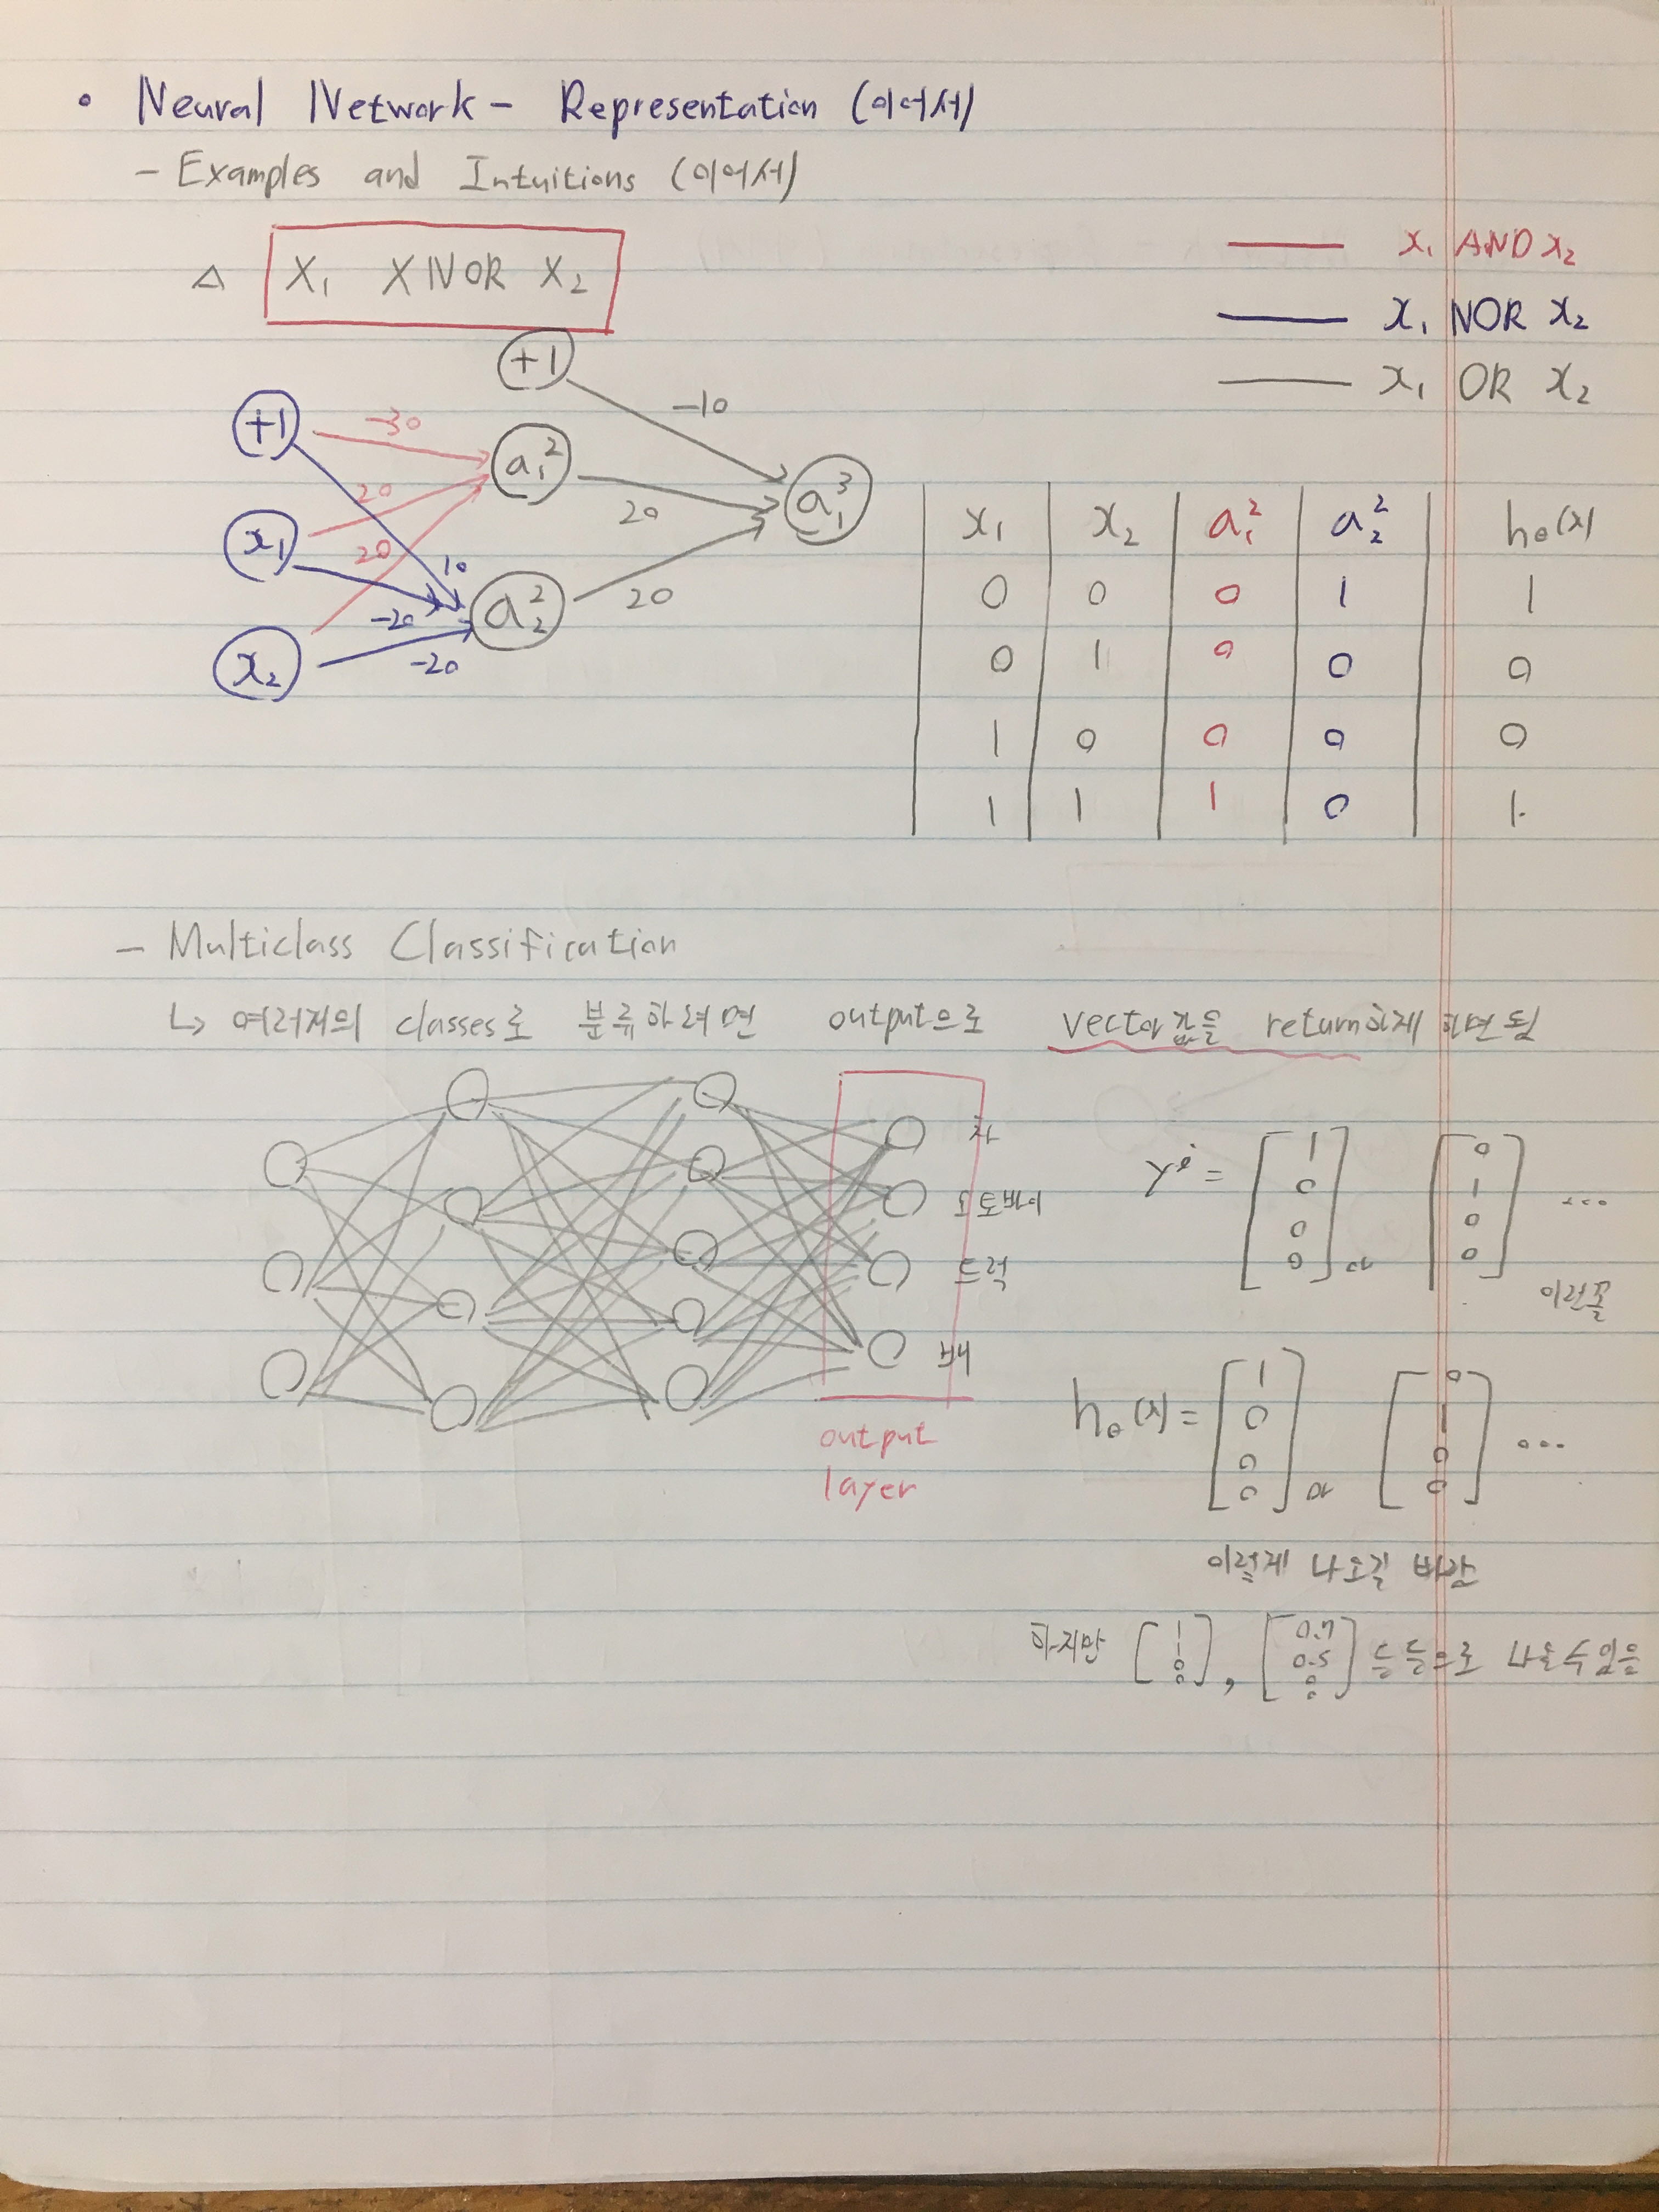 • Neural Network - Representation (이어서)
- Examples and Intuitions (이어서)
△ X₁ XNOR X₂
x₁ AND x₂
x₁ NOR x₂
x₁ OR x₂
+1
-10
+1 -30 a₁²
20 20 a₁³
x₁ 20 10
-20 a₂² 20
x₂ -20
x₁ x₂ a₁² a₂² hθ(x)
0 0 0 1 1
0 1 0 0 0
1 0 0 0 0
1 1 1 0 1
- Multiclass Classification
↳ 여러개의 classes로 분류하려면 output으로 vector값을 return하게 하면 됨
차
오토바이
트럭
배
output
layer
yⁱ = [1 0 0 0] or [0 1 0 0] ...
이런꼴
hθ(x) = [1 0 0 0] or [0 1 0 0] ...
이렇게 나오길 바람
하지만 [1 1 0 0], [0.7 0.5 0 0] 등등으로 나올 수 있음